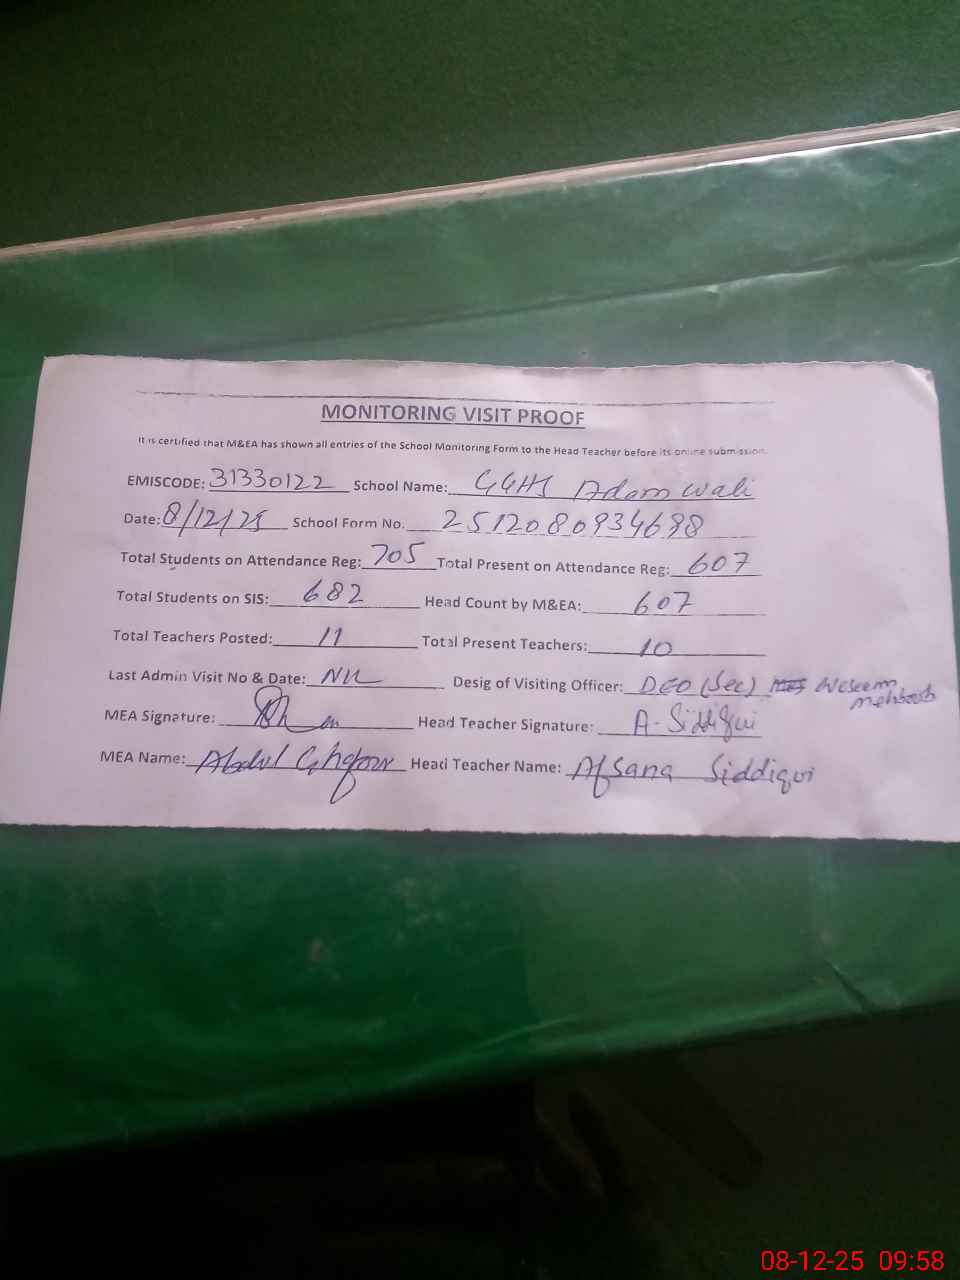 MONITORING VISIT PROOF
It is certified that M&EA has shown all entries of the School Monitoring Form to the Head Teacher before its online submission.
EMISCODE: 31330122 School Name: GGHS Adam wali
Date: 8/12/25 School Form No. 2512080934698
Total Students on Attendance Reg: 705 Total Present on Attendance Reg: 607
Total Students on SIS: 682 Head Count by M&EA: 607
Total Teachers Posted: 11 Total Present Teachers: 10
Last Admin Visit No & Date: NIL Desig of Visiting Officer: DEO (Sec) Weseem Mehboob
MEA Signature: Head Teacher Signature: A-Siddiqui
MEA Name: Abdul Ghafour Head Teacher Name: Afsana Siddiqui
08-12-25 09:58